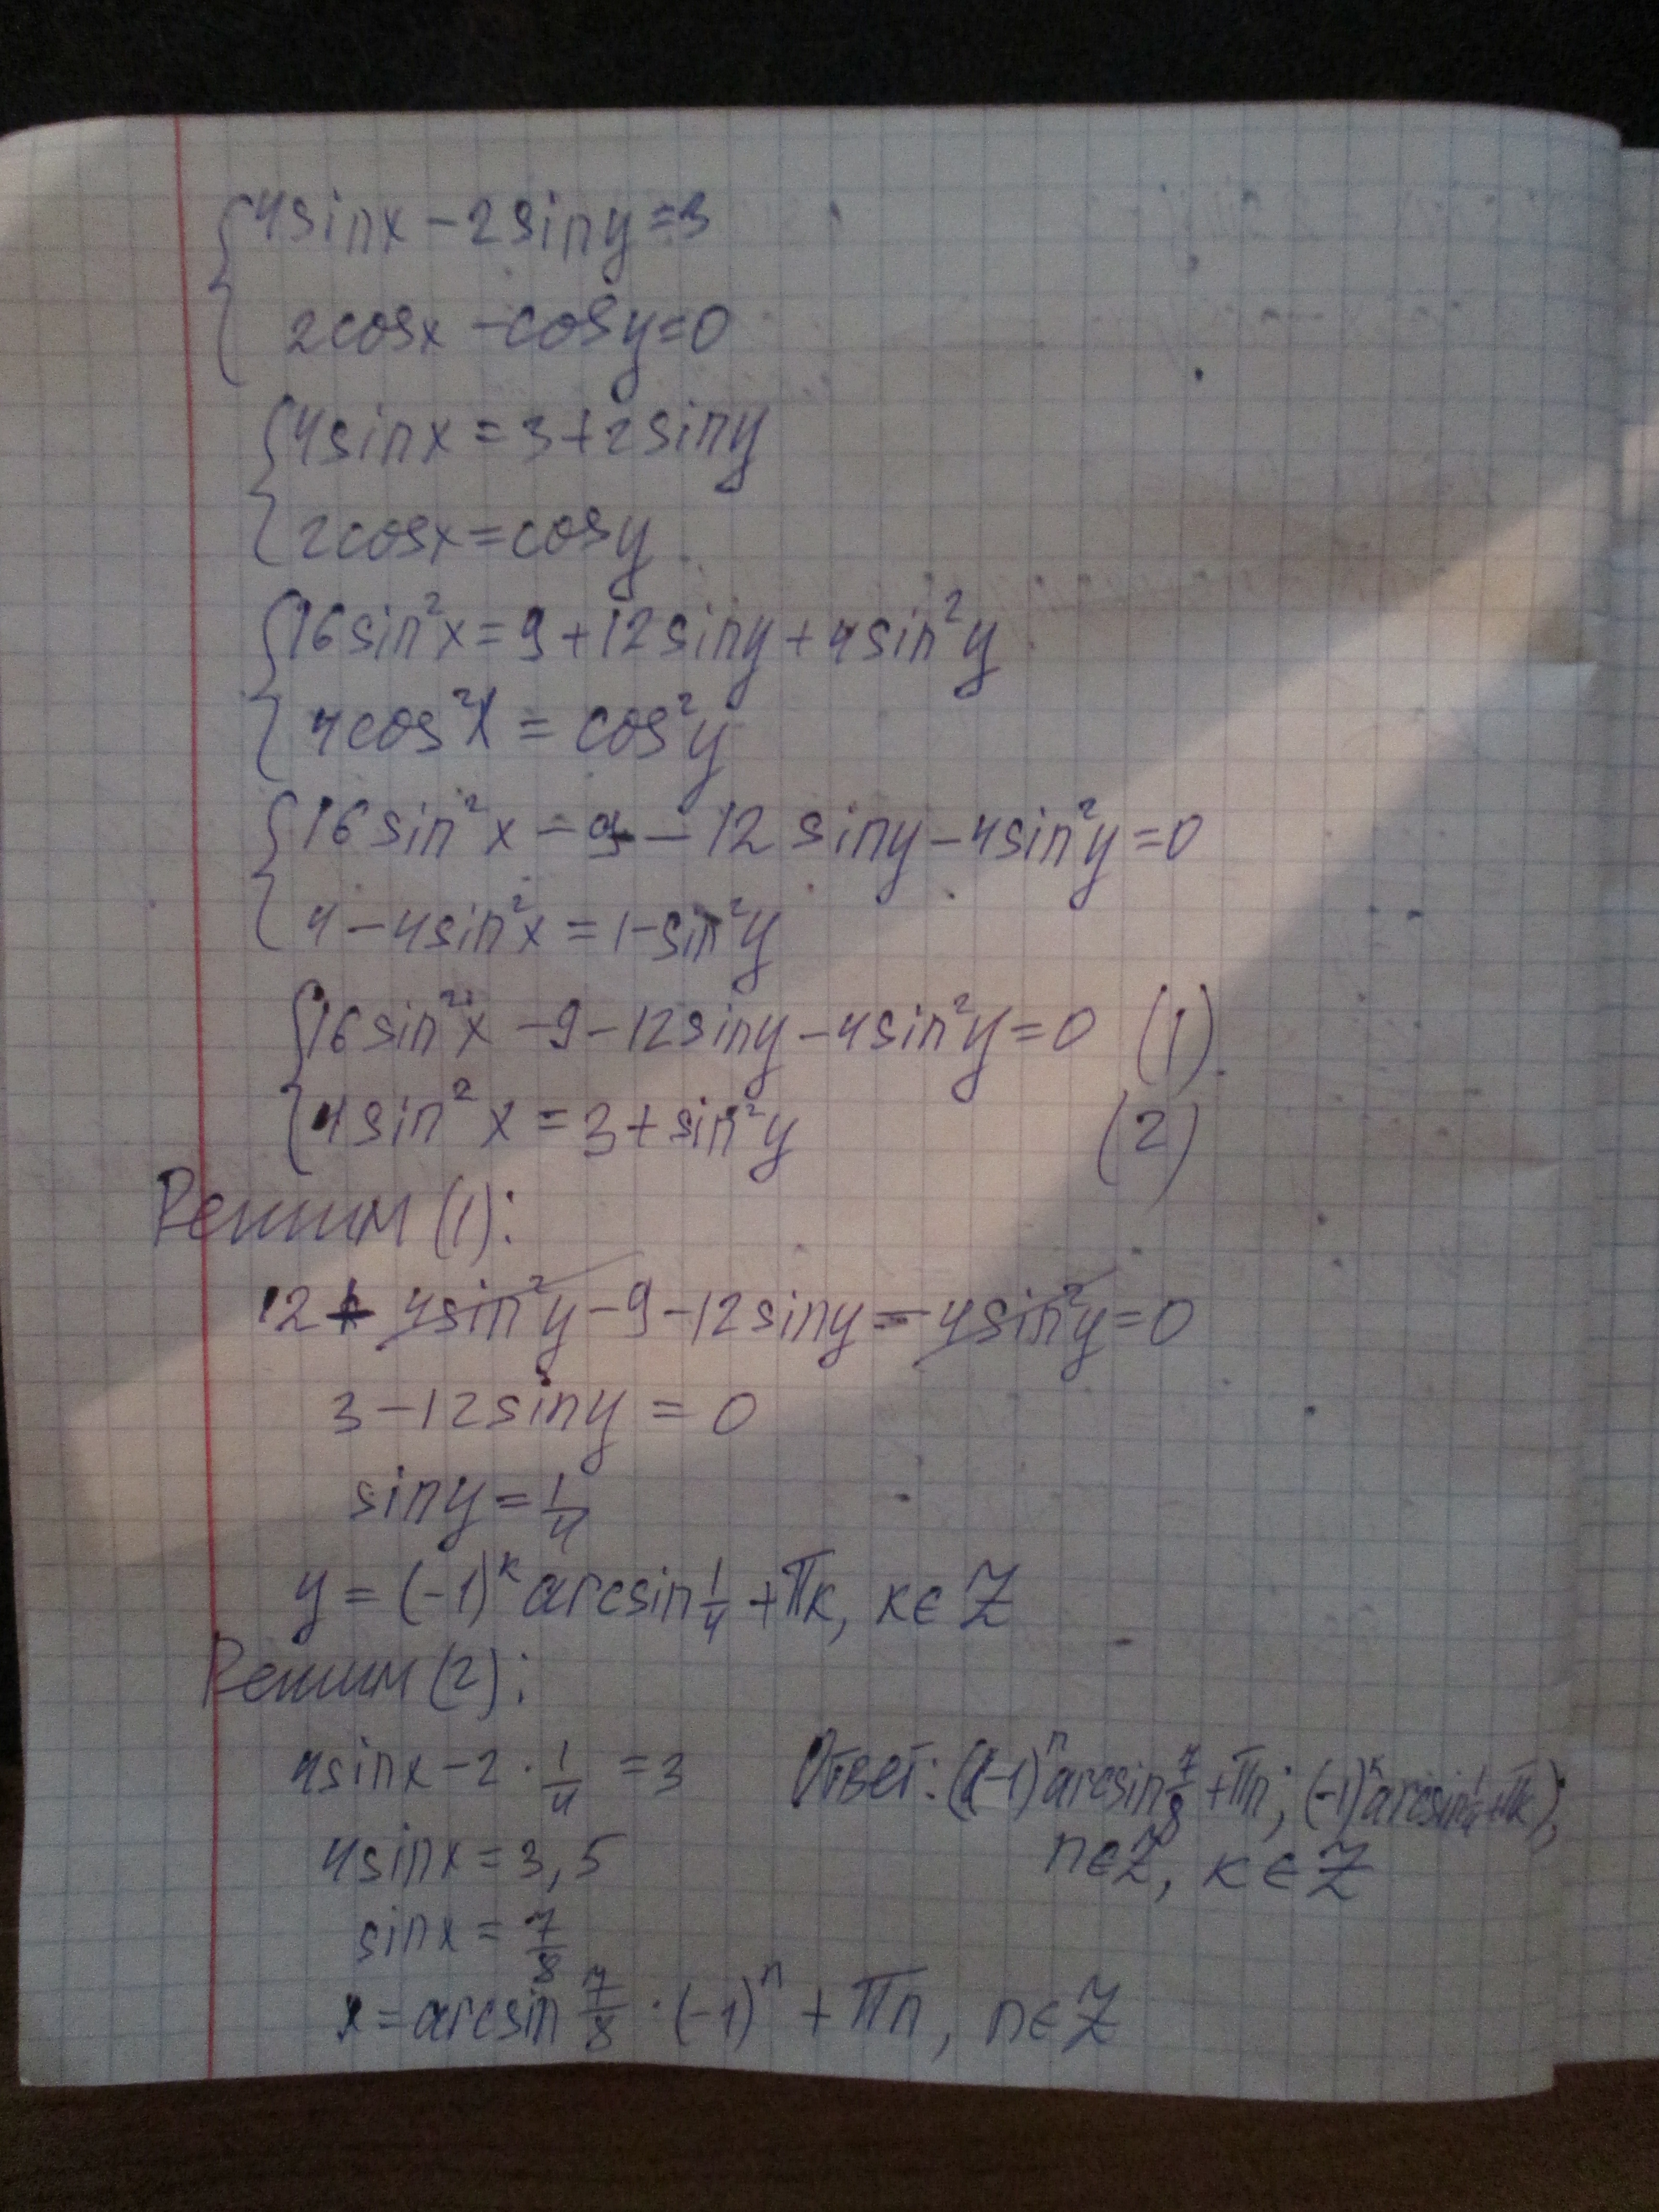 {4sinx - 2siny = 3
2cosx - cosy = 0
{4sinx = 3 + 2siny
2cosx = cosy
{16sin²x = 9 + 12siny + 4sin²y
4cos²x = cos²y
{16sin²x - 9 - 12siny - 4sin²y = 0
4 - 4sin²x = 1 - sin²y
{16sin²x - 9 - 12siny - 4sin²y = 0 (1)
4sin²x = 3 + sin²y (2)
Решим (1):
12 + 4sin²y - 9 - 12siny - 4sin²y = 0
3 - 12siny = 0
siny = 1/4
y = (-1)^к arcsin 1/4 + πк, к ∈ Z
Решим (2):
4sinx - 2 · 1/4 = 3
4sinx = 3,5
sinx = 7/8
x = arcsin 7/8 · (-1)^n + πn, n ∈ Z
Ответ: ((-1)^n arcsin 7/8 + πn; (-1)^к arcsin 1/4 + πк),
n ∈ Z, к ∈ Z